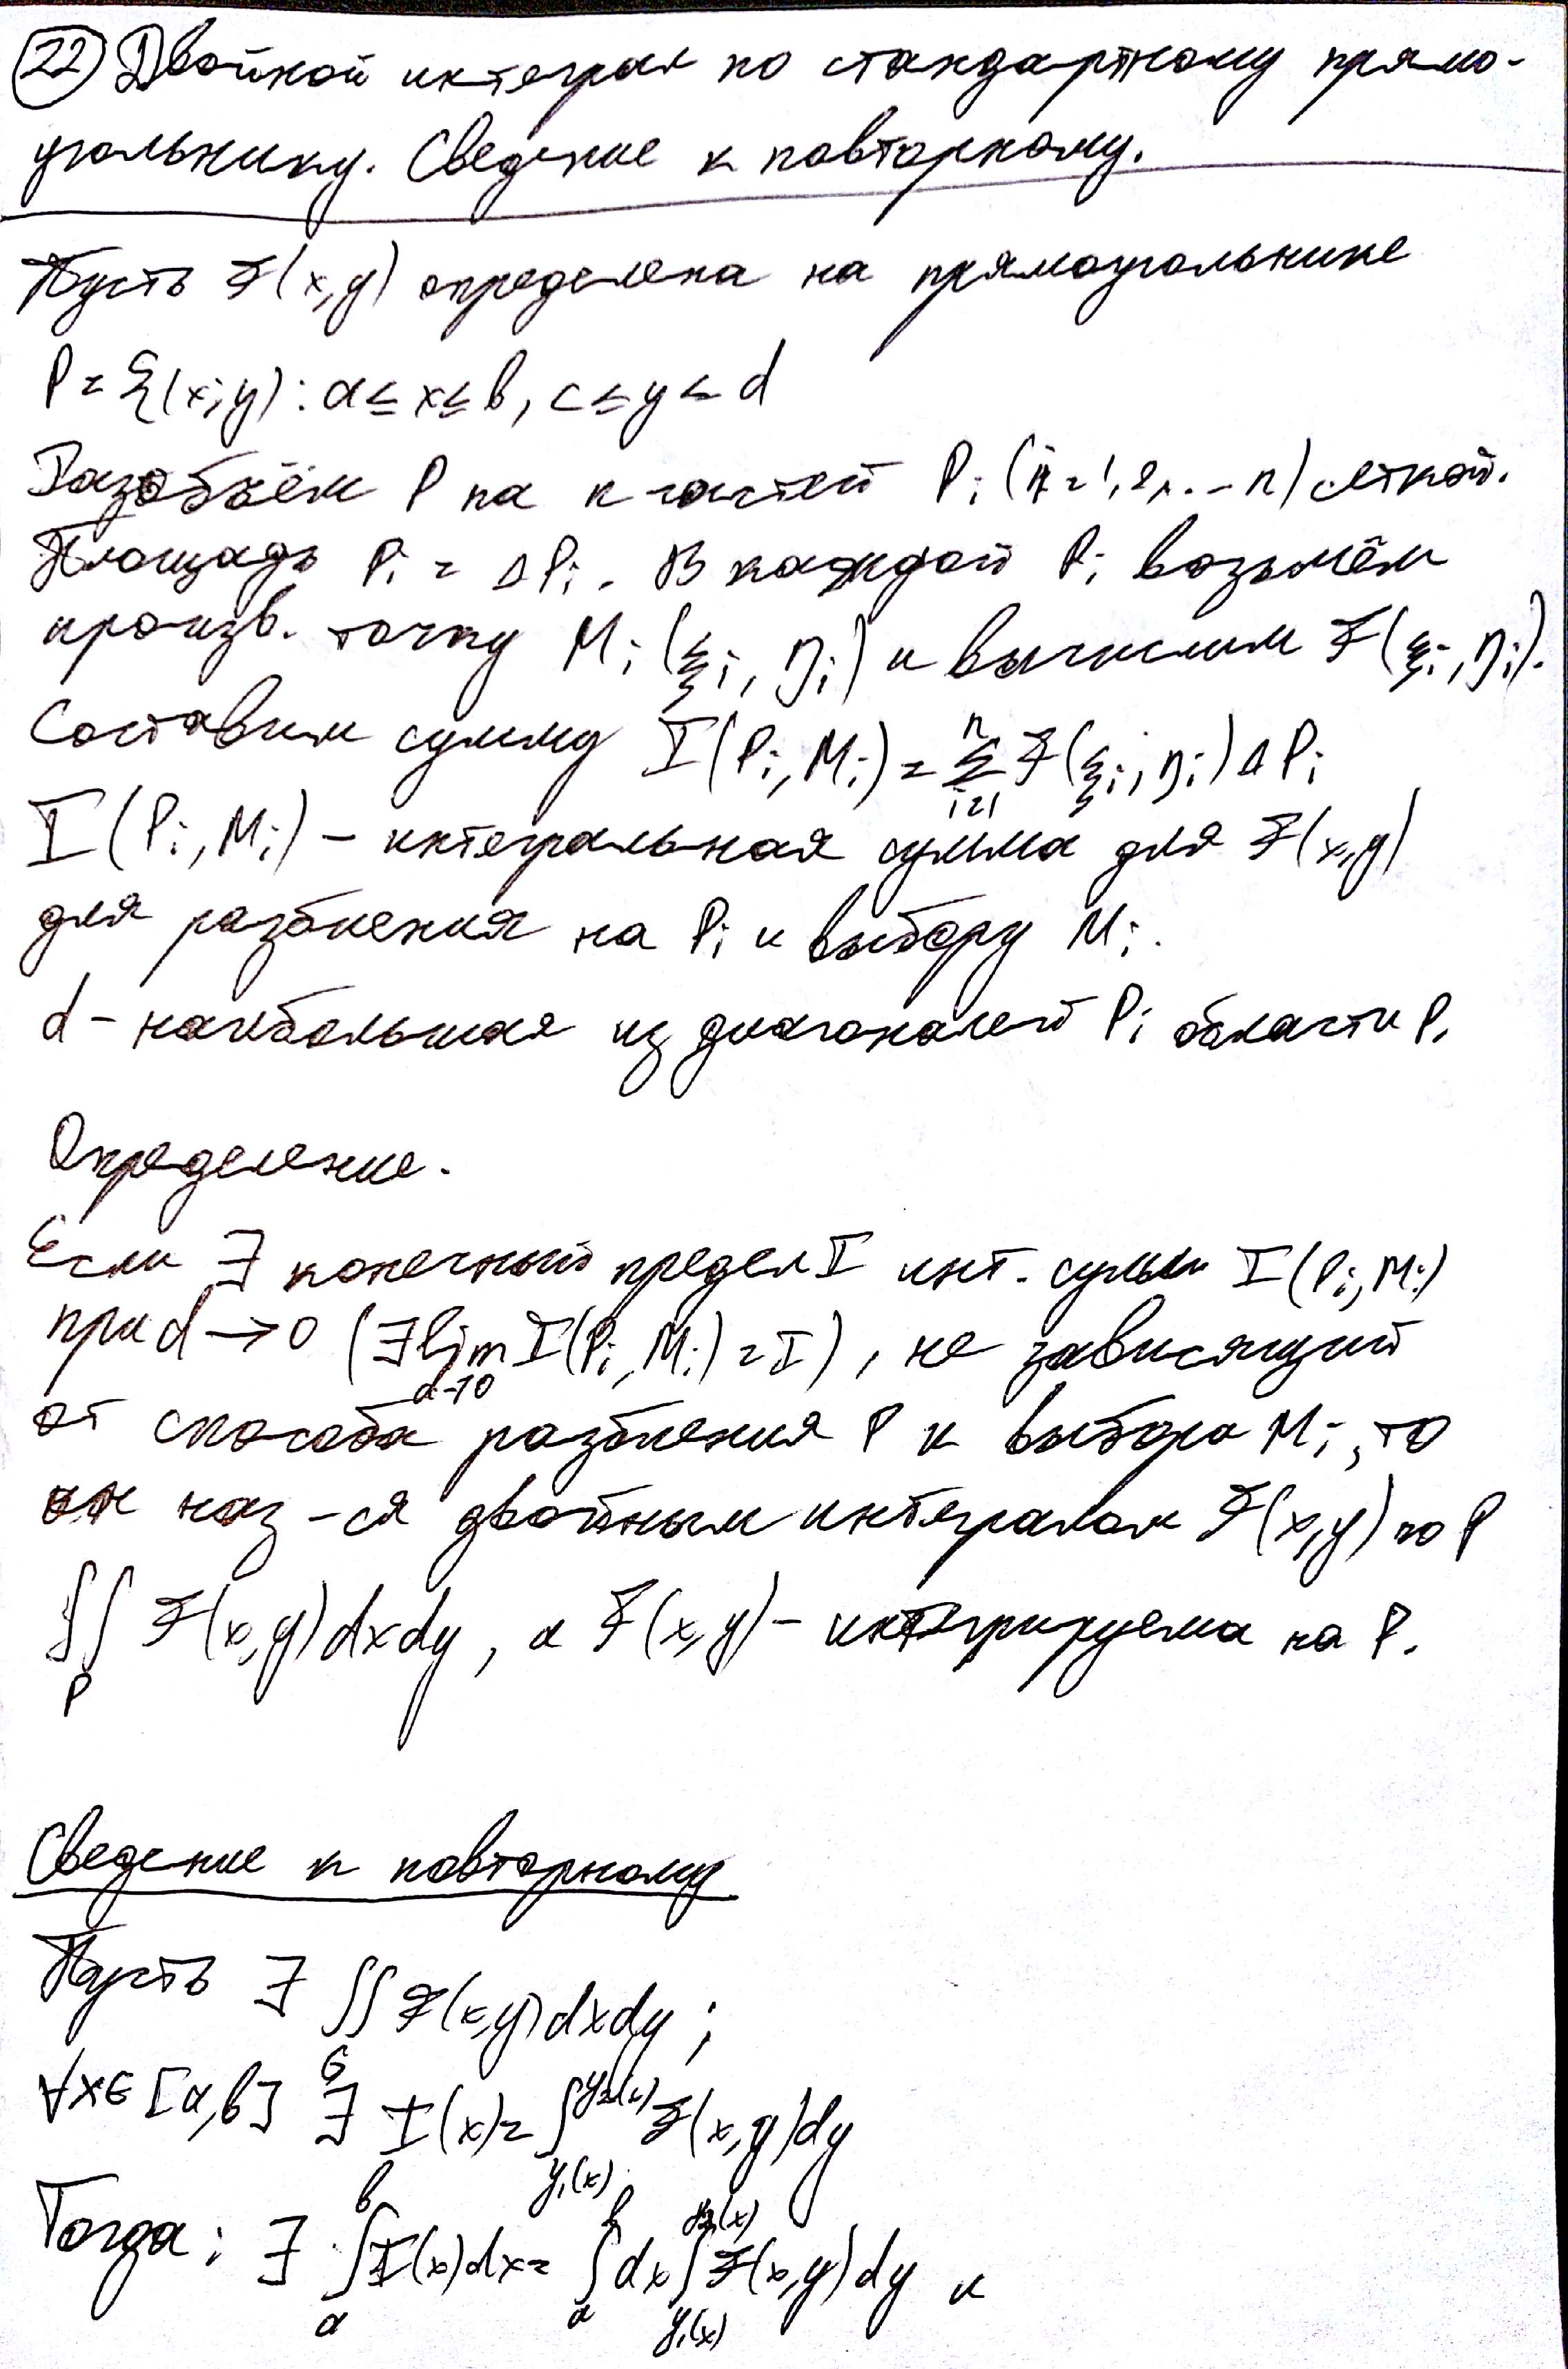 22 Двойной интеграл по стандартному прямо-
угольнику. Сведение к повторному.
Пусть F(x,y) определена на прямоугольнике
P = {(x;y): a ≤ x ≤ b, c ≤ y ≤ d
Разобъём P на n частей P_i (i = 1, 2, ... n) сеткой.
Площадь P_i = ΔP_i. В каждой P_i возьмём
произв. точку M_i (ξ_i, η_i) и вычислим F(ξ_i, η_i).
Составим сумму I(P_i, M_i) = Σ_{i=1}^{n} F(ξ_i; η_i) ΔP_i
I(P_i, M_i) – интегральная сумма для F(x,y)
для разбиения на P_i и выбору M_i.
d – наибольшая из диагоналей P_i области P.
Определение.
Если ∃ конечный предел I инт. суммы I(P_i, M_i)
при d → 0 (∃ lim_{d→0} I(P_i, M_i) = I), не зависящий
от способа разбиения P и выбора M_i, то
он наз-ся двойным интегралом F(x,y) по P
∬_P F(x,y) dxdy, а F(x,y) – интегрируема на P.
Сведение к повторному
Пусть ∃ ∬_G F(x,y) dxdy;
∀x∈[a,b] ∃ I(x) = ∫_{y₁(x)}^{y₂(x)} F(x,y)dy
Тогда: ∃ ∫_a^b I(x)dx = ∫_a^b dx ∫_{y₁(x)}^{y₂(x)} F(x,y)dy и